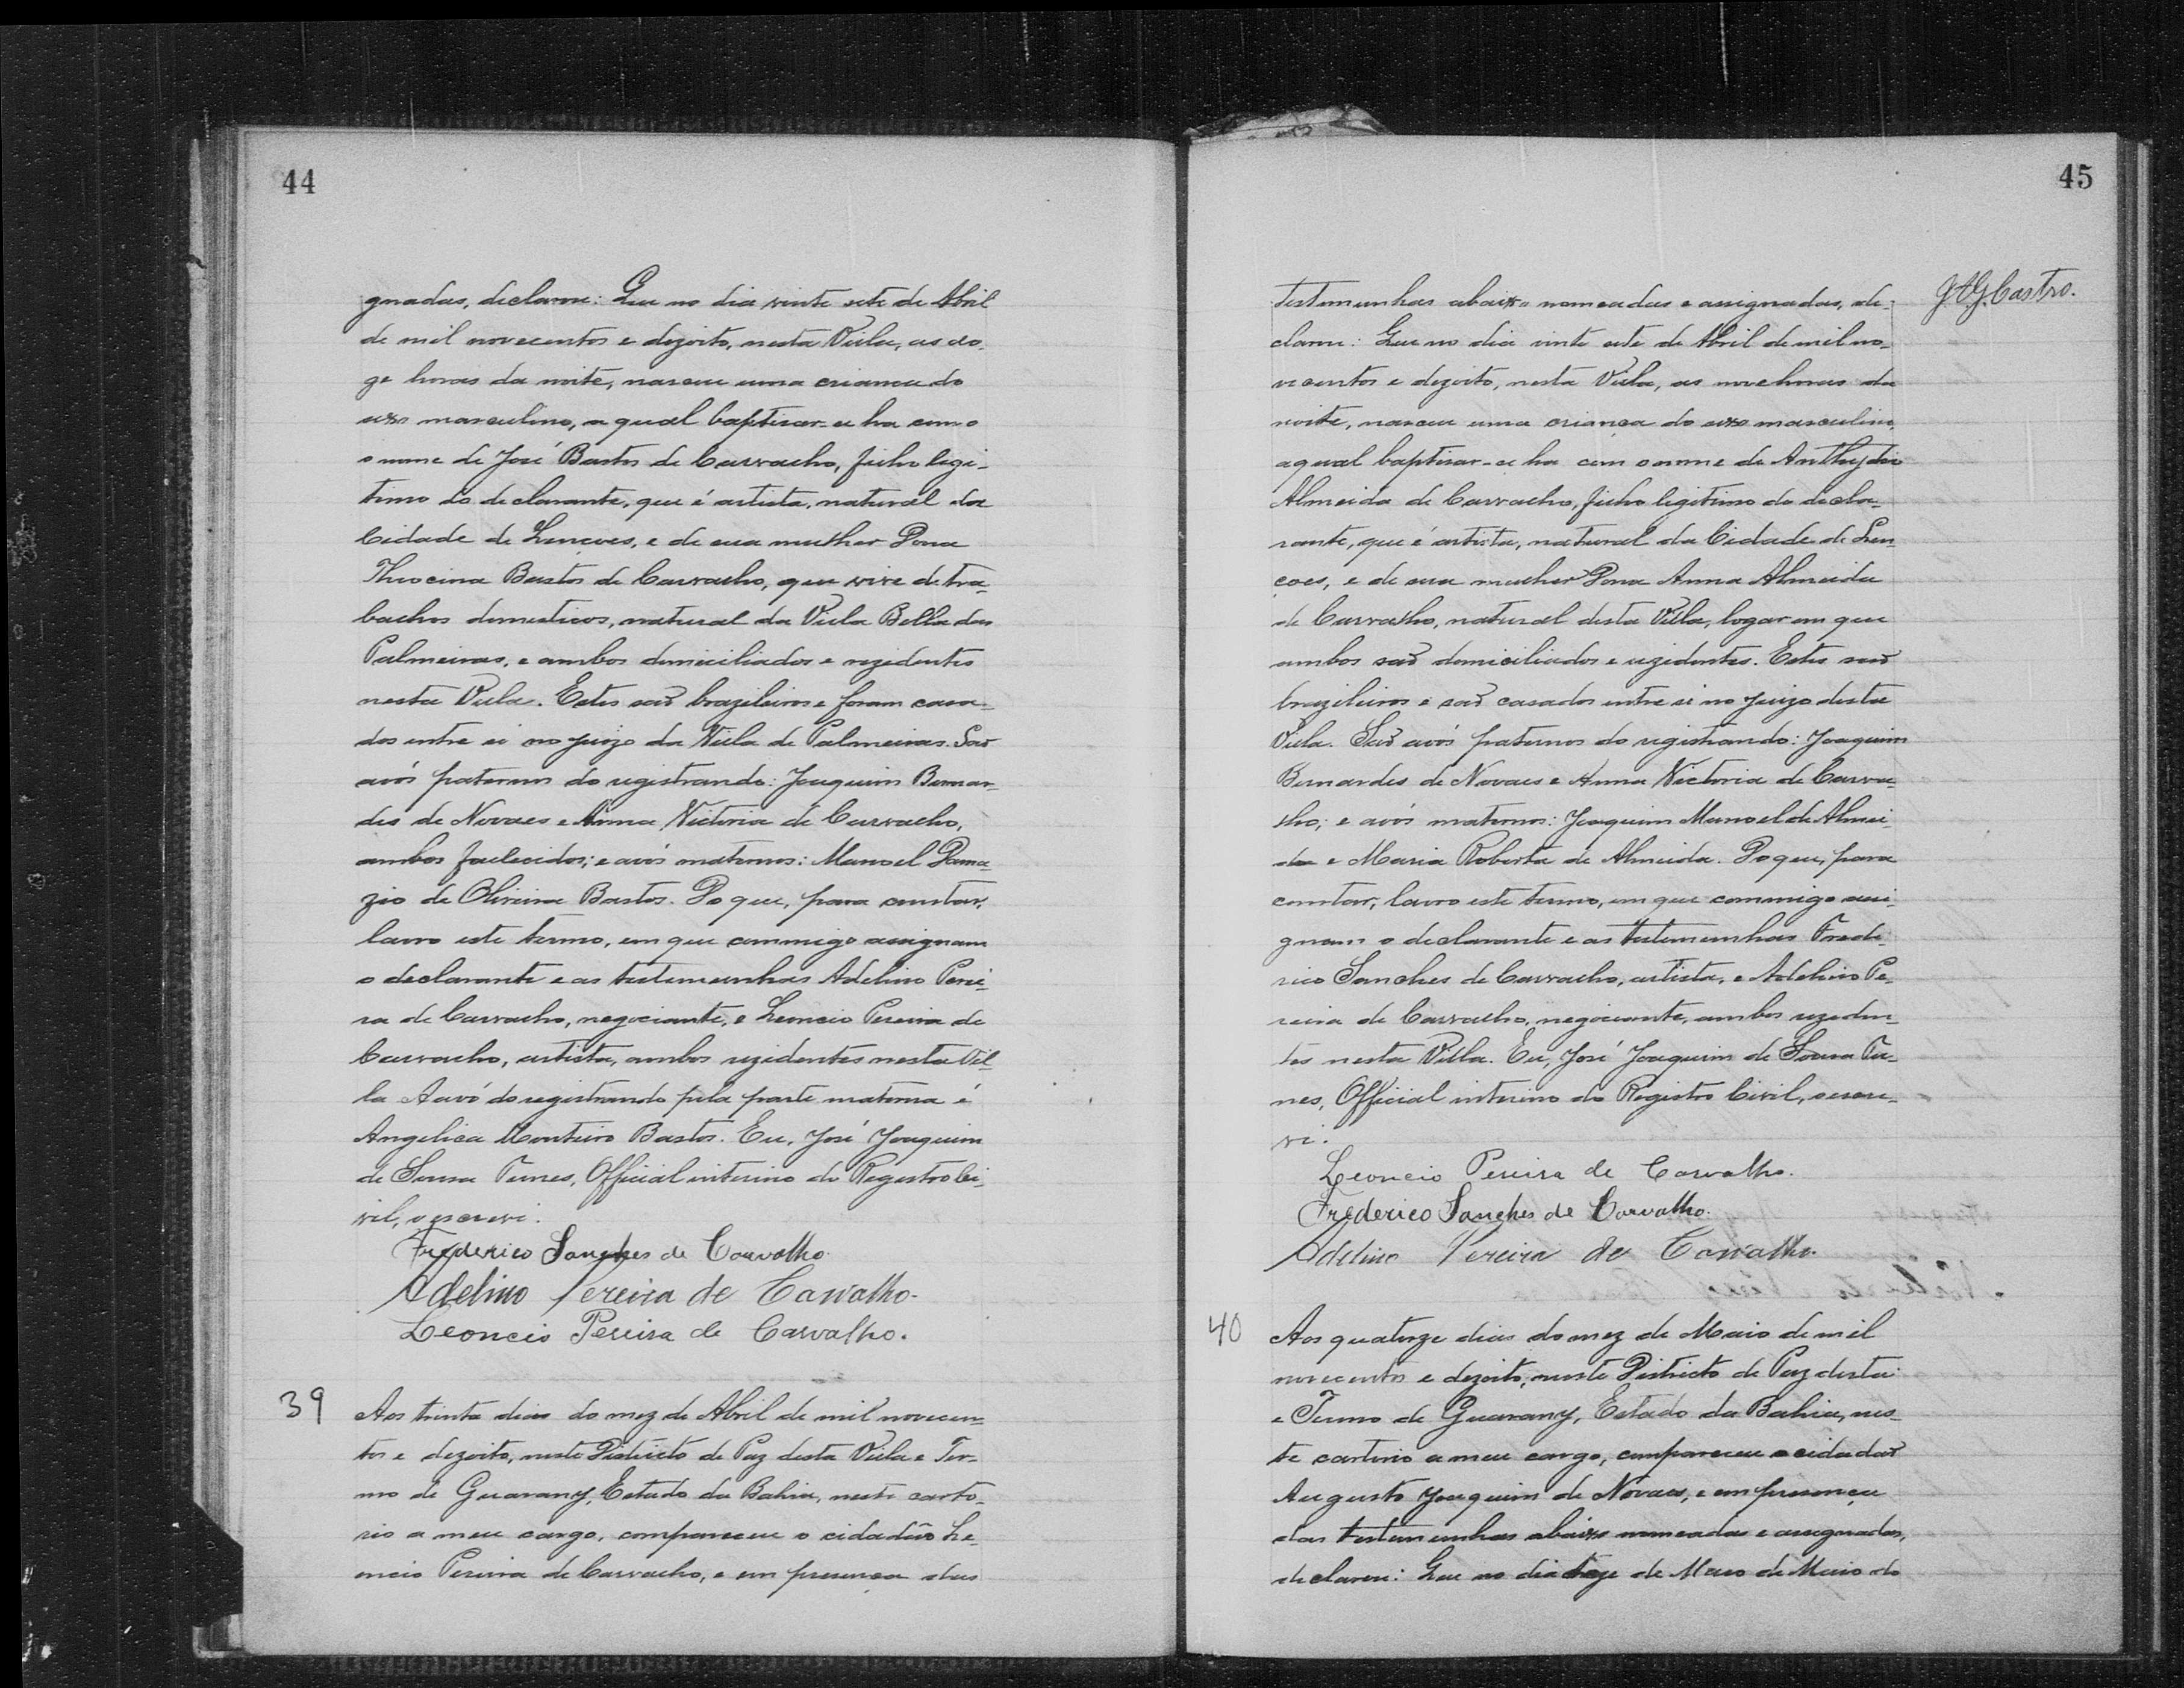 44
gnadas, declarou: Que no dia vinte sete de Abril
de mil novecentos e dezoito, nesta Villa, as do-
ze horas da noite, nasceu uma criança do
sexo masculino, a qual baptisar-se ha com o
o nome de José Bastos de Carvalho, filho legi-
timo do declarante, que é artista, natural da
Cidade de Lençoes, e de sua mulher Dona
Bastos de Carvalho, que vive de tra-
balhos domesticos, natural da Villa Bella das
Palmeiras, e ambos domiciliados e rezidentes
nesta Villa. Estes saõ brazileiros e foram casa-
dos entre si no juizo da Villa de Palmeiras. Saõ
avós paternos do registrando: Joaquim Bernar-
des de Novaes e Anna Victoria de Carvalho,
ambos fallecidos; e avós maternos: Manoel Dama-
zio de Oliveira Bastos. Do que, para constar,
lavro este termo, em que commigo assignam
o declarante e as testemunhas Adelino Perei-
ra de Carvalho, negociante, e Leoncio Pereira de
Carvalho, artista, ambos rezidentes nesta Vil-
la A avó do registrando pela parte materna é
Angelica Monteiro Bastos. Eu, José Joaquim
de Sousa Tunes, Official interino do Registro Ci-
vil, o escrevi.
Frederico Sanches de Carvalho
Adelino Pereira de Carvalho.
Leoncio Pereira de Carvalho.
39 Aos trinta dias do mez de Abril de mil novecen-
tos e dezoito, neste Districto de Paz desta Villa e Ter-
mo de Guarany, Estado da Bahia, neste carto-
rio a meu cargo, compareceu o cidadão Le-
oncio Pereira de Carvalho, e em presença das
45
testemunhas abaixo nomeadas e assignadas, de-
clarou: Que no dia vinte sete de Abril de mil no-
vecentos e dezoito, nesta Villa, as nove horas da
noite, nasceu uma criança do sexo masculino,
a qual baptisar-se ha com o nome de
Almeida de Carvalho, filho legitimo do decla-
rante, que é artista, natural da Cidade de Len-
çoes, e de sua mulher Dona Anna Almeida
de Carvalho, natural desta Villa, logar em que
ambos saõ domiciliados e rezidentes. Estes saõ
brazileiros e saõ casados entre si no Juizo desta
Villa. Saõ avós paternos do registrando: Joaquim
Bernardes de Novaes e Anna Victoria de Carva-
lho; e avós maternos: Joaquim Manoel de Almei-
da e Maria Roberta de Almeida. Do que, para
constar, lavro este termo, em que commigo assi-
gnam o declarante e as testemunhas Frede-
rico Sanches de Carvalho, artista, e Adelino Pe-
reira de Carvalho, negociante, ambos reziden-
tes nesta Villa. Eu, José Joaquim de Sousa Tu-
nes, Official interino do Registro Civil, o escre-
vi.
Leoncio Pereira de Carvalho.
Frederico Sanches de Carvalho.
Adelino Pereira de Carvalho.
40 Aos quatorze dias do mez de Maio de mil
novecentos e dezoito, neste Districto de Paz desta
e Termo de Guarany, Estado da Bahia, nes-
te cartorio a meu cargo, compareceu o cidadaõ
Augusto Joaquim de Novaes, e em presença
das testemunhas abaixo nomeadas e assignadas,
declarou: Que no dia treze de de Maio de
J.A.G. Castro.